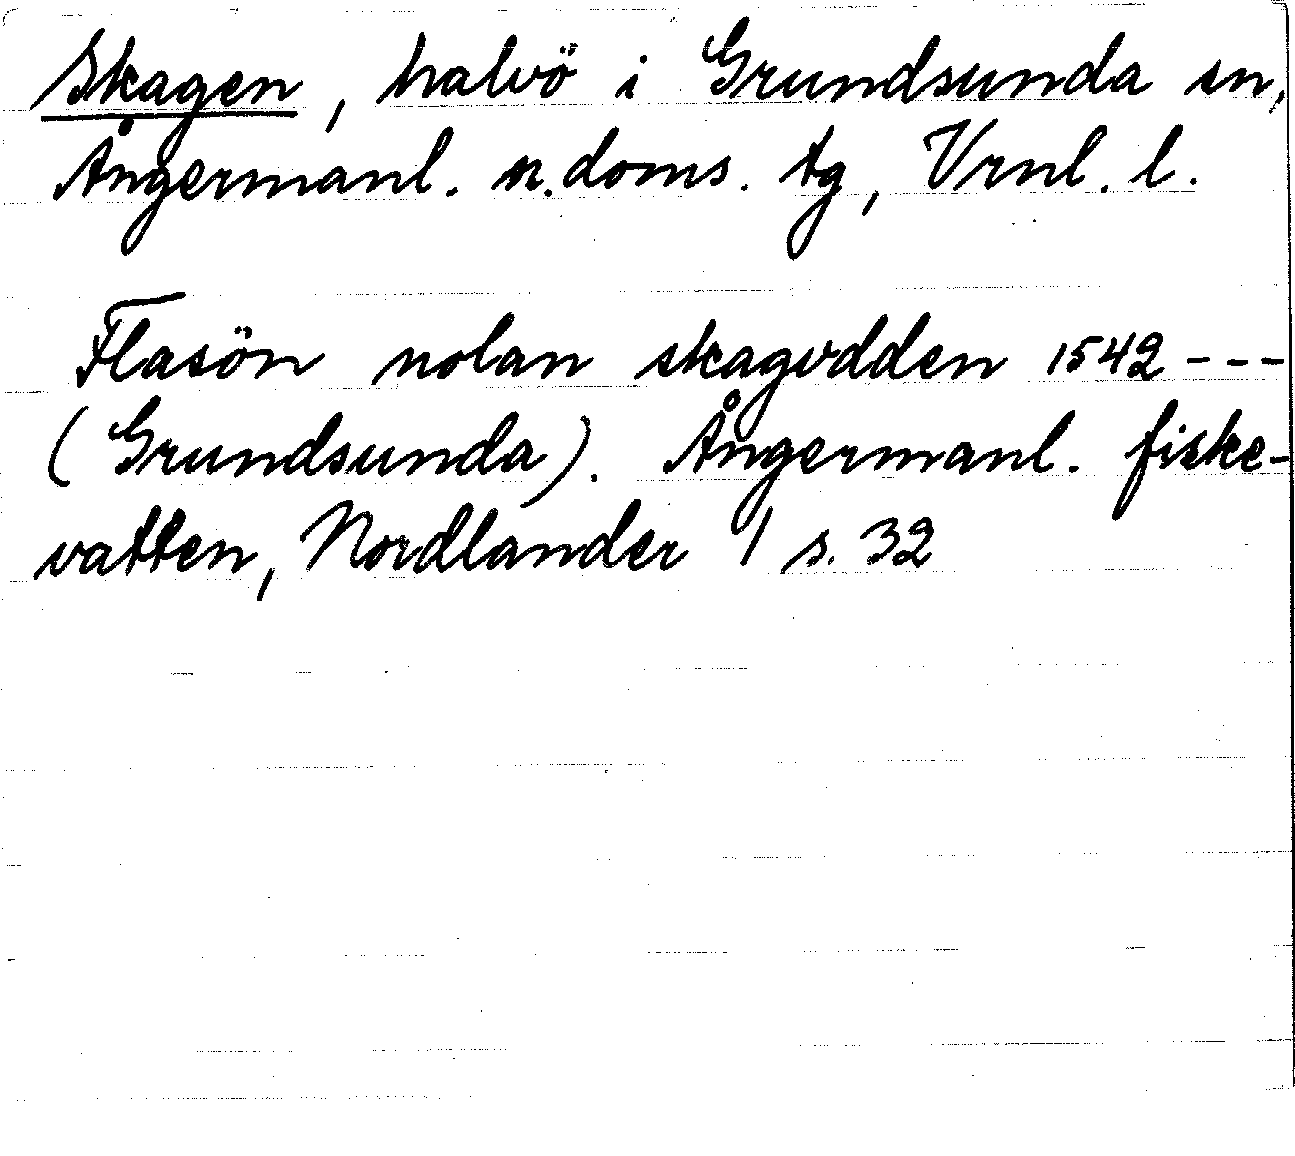 Skagen, halvö i Grundsunda sn,
Ångermanl. n. doms. tg, Vrnl. l.
Flasön nolan skagvdden 1542 - - -
(Grundsunda). Ångermanl. fiske-
vatten, Nordlander 1 s. 32